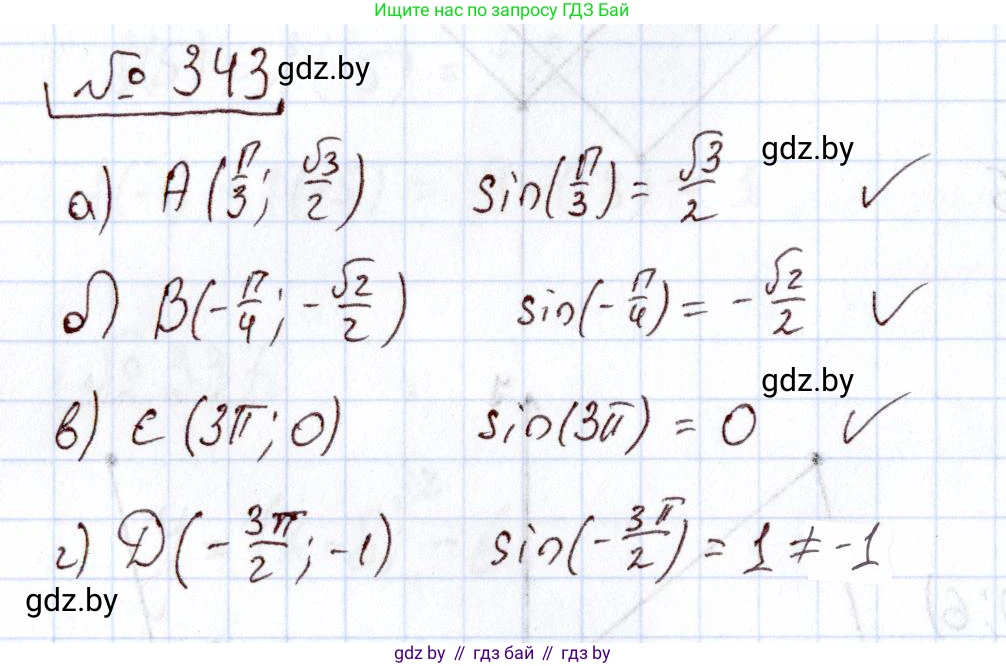 Ищите нас по запросу ГДЗ Бай
№ 343 gdz.by
а) A (π/3; √3/2) sin(π/3) = √3/2 ✓ gdz.by
б) B(-π/4; -√2/2) sin(-π/4) = -√2/2 ✓
gdz.by
в) C (3π; 0) sin(3π) = 0 ✓
г) D(-3π/2; -1) sin(-3π/2) = 1 ≠ -1
gdz.by
gdz.by // гдз бай // гдз by